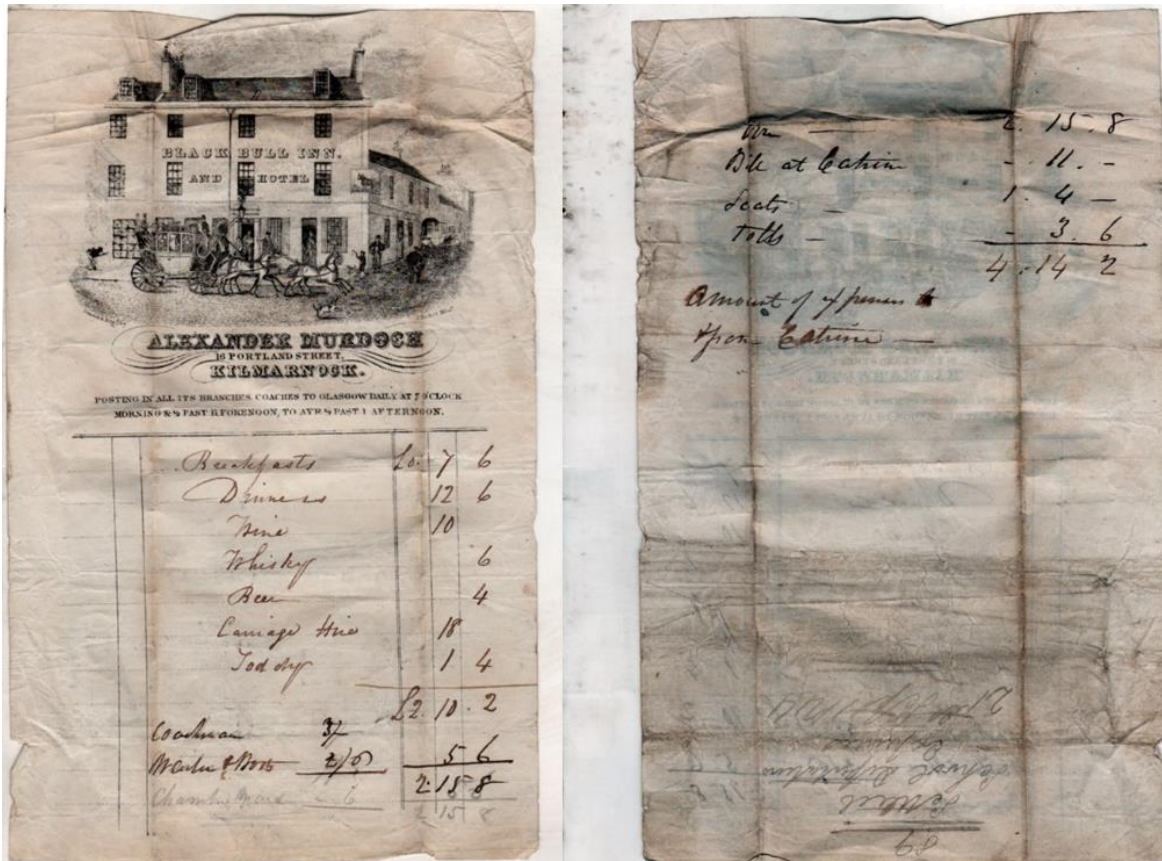 BLACK BULL INN.
AND HOTEL
ALEXANDER MURDOCH
16 PORTLAND STREET,
KILMARNOCK.
POSTING IN ALL ITS BRANCHES. COACHES TO GLASGOW DAILY AT 7 O'CLOCK
MORNING & ½ PAST 11 FORENOON, TO AYR ½ PAST 1 AFTERNOON.
Breakfasts £0. 7 6
Dinners 12 6
Wine 10
Whisky 6
Beer 4
Carriage Hire 18
Toddy 1 4
£2. 10. 2
Coachman 3/
Waiter & Boots 2/6 5 6
2 15 8
Chamber Maid 6
2 15 8
2. 15. 8
Bill at Catrine - 11. -
Seats - 1. 4 -
Tolls - - 3. 6
4. 14 2
Amount of expenses
Catrine -